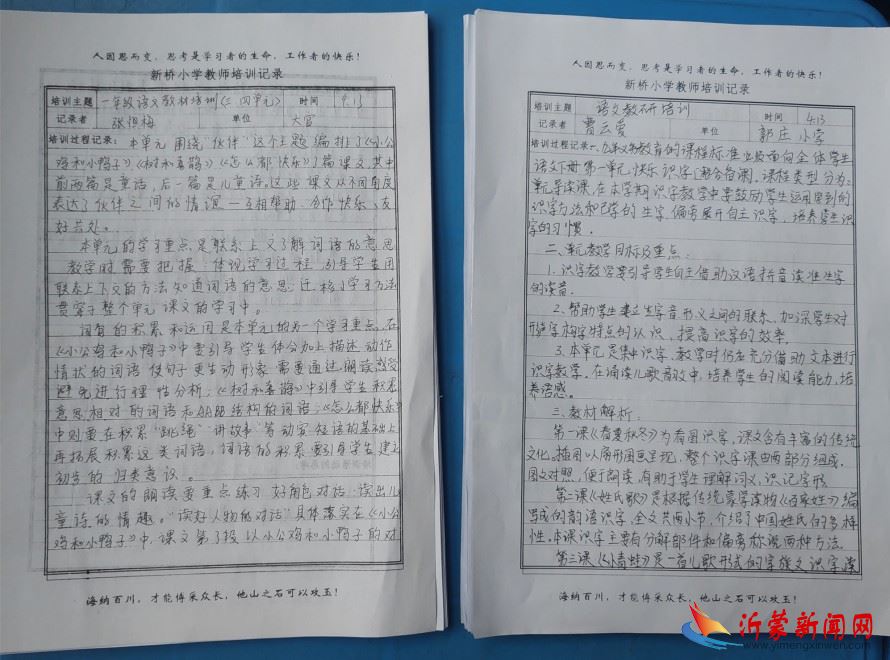 人因思而变，思考是学习者的生命，工作者的快乐！
新桥小学教师培训记录
培训主题 一年级语文教材培训(三、四单元) 时间 4.13
记录者 张 梅 单位 大官
培训过程记录： 本单元围绕“伙伴”这个主题编排了《小公
鸡和小鸭子》《树和喜鹊》《怎么都快乐》了篇课文,其中
前两篇是童话，后一篇是儿童诗。这些课文从不同角度
表达了伙伴之间的情谊—互相帮助、合作快乐、友
好共处。
本单元的学习重点是联系上文了解词语的意思
教学时需要把握：体现学习过程，引导学生用
联系上下文的方法知道词语的意思,迁移学习方法
贯穿于整个单元课文的学习中。
词句的积累和运用是本单元的另一个学习重点。在
《小公鸡和小鸭子》中要引导学生体会加上描述动作
情状的词语使句子更生动形象，需要通过朗读感受
避免进行理性分析；《树和喜鹊》中引导学生积累
意思相对的词语和AABB结构的词语；《怎么都快乐》
中则要在积累“跳绳”“讲故事”等动宾短语的基础上
再拓展积累这类词语，词语的积累要引导学生建立
初步的归类意识。
课文的朗读要重点练习好角色对话，读出儿
童诗的情趣。“读好人物的对话”具体落实在《小公
鸡和小鸭子》中，课文第了段以小公鸡和小鸭子的对
海纳百川，才能博采众长，他山之石可以攻玉！
人因思而变，思考是学习者的生命，工作者的快乐！
新桥小学教师培训记录
培训主题 语文教研培训 时间 4.13
记录者 曹云爱 单位 郭庄小学
培训过程记录：一、九年义务教育的课程标准 面向全体学生
语文下册第一单元,快乐识字[融合备课],课程类型分为：
单元导读课，在本学期识字教学中要鼓励学生运用里到的
识字方法和已学的生字，偏旁展开自主识字，培养学生识
字的习惯。
二、单元教学目标及重点：
1、识字教学要引导学生自主借助汉语拼音读准生字
的读音。
2、帮助学生建立生字音形义之间的联系，加深学生对
形声字构字特点的认识，提高识字的效率。
3、本单元是集中识字，教学时仍应充分借助文本进行
识字教学，在诵读儿歌 中，培养学生的阅读能力，培
养语感。
三、教材解析：
第一课《春夏秋冬》为看图识字，课文含有丰富的传统
文化。插图以扇形图画呈现，整个识字课由两部分组成，
图文对照，便于阅读，有助于学生理解词义，识记字形
第二课《姓氏歌》是根据传统蒙学读物《百家姓》编
写成的韵语识字，全文共两小节，介绍了中国姓氏的多样
性，本课识字主要有分解部件和偏旁称说两种方法。
第三课《小青蛙》是一首儿歌形式的字族文识字,该
海纳百川，才能博采众长，他山之石可以攻玉！
沂蒙新闻网
www.yimengxinwen.com